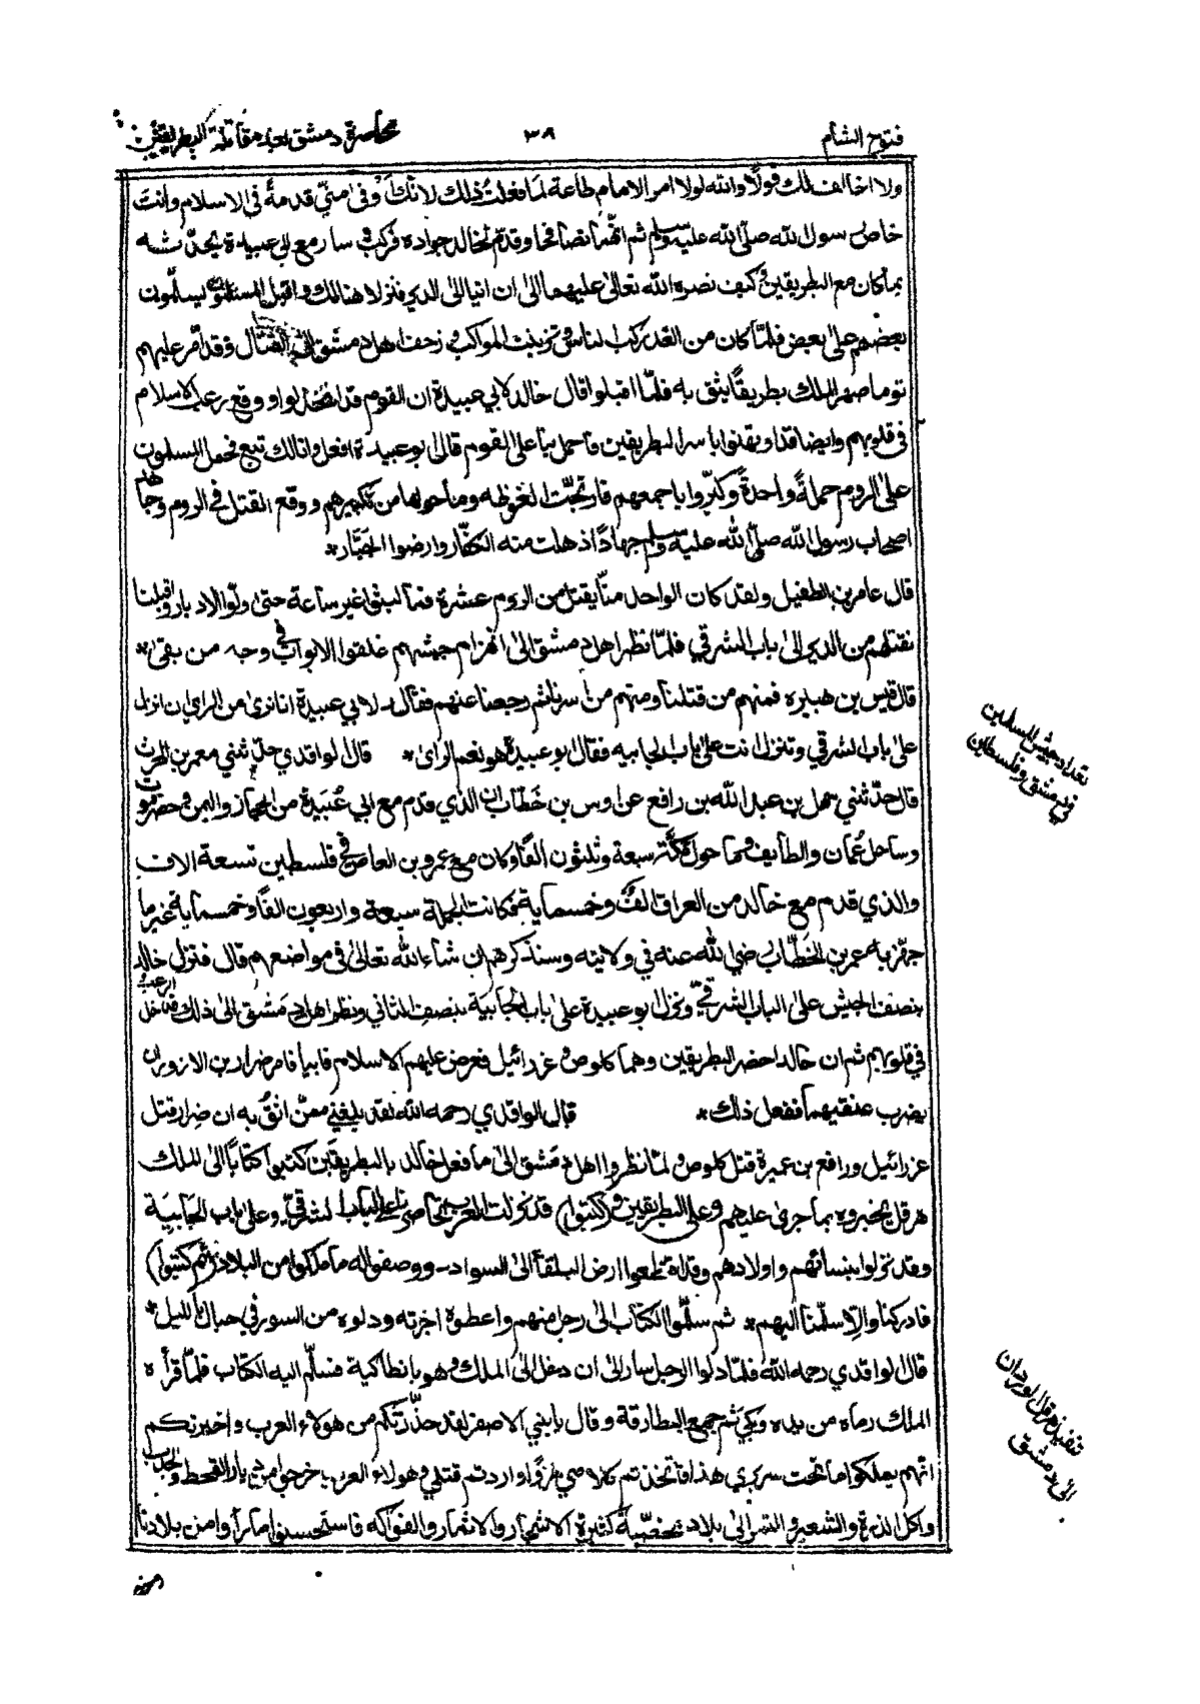 فتوح الشام
٣٨
محاصرة دمشق بعد مقاتلة البطريقين
ولا اخالف لك قولا والله لولا امر الامام طاعة لما فعلت ذلك لانك اوفى منى قدمة فى الاسلام وانت
خاص رسول الله صلى الله عليه وسلم ثم انهما تصافحا وقدم لخالد جواده فركب و سار مع ابي عبيدة يحدثه
بما كان مع البطريقين و كيف نصره الله تعالى عليهما الى ان اتيا الى الدير فنزلا هنالك و اقبل المسلمون يسلمون
بعضهم على بعض فلما كان من الغد ركب الناس و تزينت المواكب و زحف اهل دمشق الى القتال وقد أمر عليهم
توما صهر الملك بطريقًا يثق به فلما اقبلوا قال خالد لابي عبيدة ان القوم قد انخذلوا و وقع رعب الاسلام
فى قلوبهم وايضا قد اوهنوا باسر البطريقين فاحمل بنا على القوم قال ابو عبيدة افعل وانا لك تبع فحمل المسلمون
على الروم حملةً واحدةً وكبروا باجمعهم فارتجت الغوطه وما حولها من تكبيرهم و وقع القتل في الروم وجاهد
اصحاب رسول الله صلى الله عليه وسلم جهادًا ذهلت منه الكفار وارضوا الجبار*
قال عامر بن الطفيل و لقد كان الواحد منا يقتل من الروم عشرة فما لبثوا غير ساعة حتى ولوا الادبار واقبلنا
نقتلهم من الدير الى باب الشرقي فلما نظر اهل دمشق الى انهزام جيشهم غلقوا الابواب في وجه من بقي*
قال قيس بن هبيره فمنهم من قتلنا ومنهم من اسرنا ثم رجعنا عنهم فقال لابي عبيدة انا نرى من الراي ان انزل
على باب الشرقي وتنزل انت على باب الجابيه فقال ابو عبيدة هو نعم الراى* قال الواقدي حدثني معمر بن الحرث
قال حدثني سهل بن عبد الله بن رافع عن اوس بن خطاب ان الذي قدم مع ابي عبيدة من الحجاز واليمن و حضرموت
وساحل عمان والطايف وما حول مكة سبعة وثلثون الفًا وكان مع عمرو بن العاص في فلسطين تسعة الاف
والذي قدم مع خالد من العراق الف و خمسماية فكانت الجملة سبعة و اربعون الفًا وخمسماية غير ما
جهز به عمر بن الخطاب رضي الله عنه في ولايته وسنذكرهم ان شاء الله تعالى فى مواضعهم قال فنزل خالد
بنصف الجيش على الباب الشرقي و نزل ابو عبيدة على باب الجابية بنصف الثاني ونظر اهل دمشق الى ذلك فدخل الرعب
في قلوبهم ثم ان خالدا احضر البطريقين وهما كلوص و عزرائيل فعرض عليهم الاسلام فابيا فامر ضرار بن الازور ان
يضرب عنقيهما ففعل ذلك* قال الواقدي رحمه الله لقد بلغني ممن اثق به ان ضرار قتل
عزرائيل ورافع بن عميرة قتل كلوص و لما نظروا اهل دمشق الى ما فعل خالد بالبطريقين كتبوا كتابًا الى الملك
هرقل يخبروه بما جرى عليهم وعلى البطريقين (وكتبوا) قد نزلت العرب تحاصرنا على الباب الشرقي وعلى باب الجابية
وقد نزلوا بنسائهم و اولادهم وقد قطعوا ارض البلقا الى السواد ووصفوا له ما ملكوا من البلاد (ثم كتبوا)
فادركنا والا سلمنا اليهم* ثم سلموا الكتاب الى رجل منهم و اعطوه اجرته و دلوه من السور في حبال بالليل*
قال الواقدي رحمه الله فلما دلوا الرجل سار الى ان دخل الى الملك و هو بانطاكية فسلم اليه الكتاب فلما قرأه
الملك رماه من يده وبكى ثم جمع البطارقة و قال يا بني الاصفر لقد حذرتكم من هولاء العرب و اخبرتكم
انهم يملكوا ما تحت سريري هذا فاتخذتم كلامي هزوًا و اردتم قتلي و هولاء العرب خرجوا من ديار القحط والجدب
واكل الذرة والشعير والتمر الى بلاد مخصبة كثيرة الاشجار والاثمار والفواكه فاستحسنوا ما رأوا من بلادنا
تعداد جيش المسلمين
في دمشق و فلسطين
تنفيذ هرقل لوردان
الى دمشق